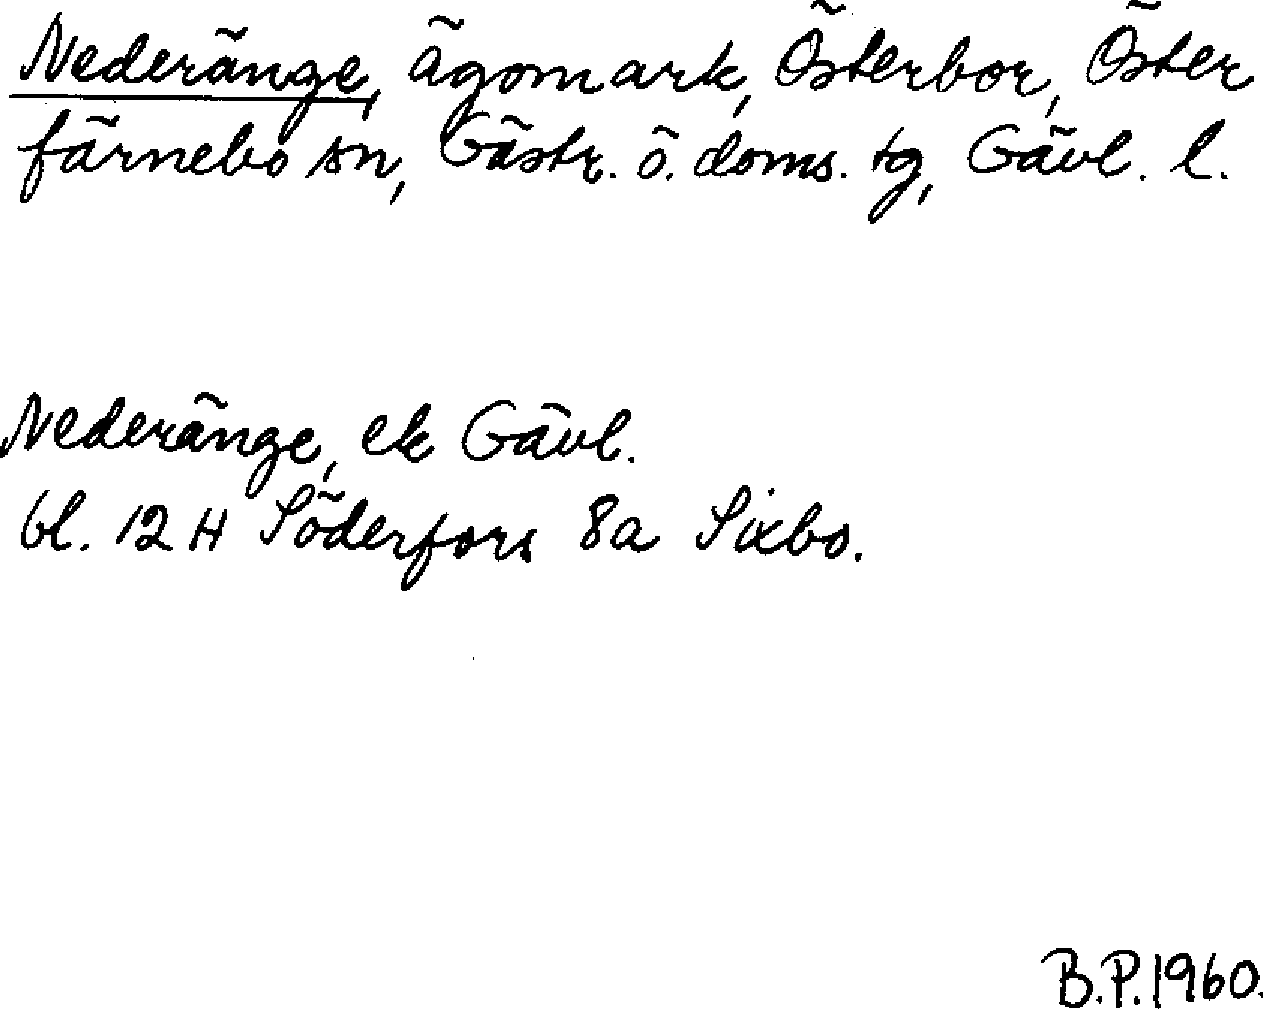 Nederänge, ägomark, Österbor, Öster
färnebo sn, Gästr. ö. doms. tg, Gävl. l.
Nederänge, ek Gävl.
bl. 12 H Söderfors 8a Sixbo.
B.P. 1960.